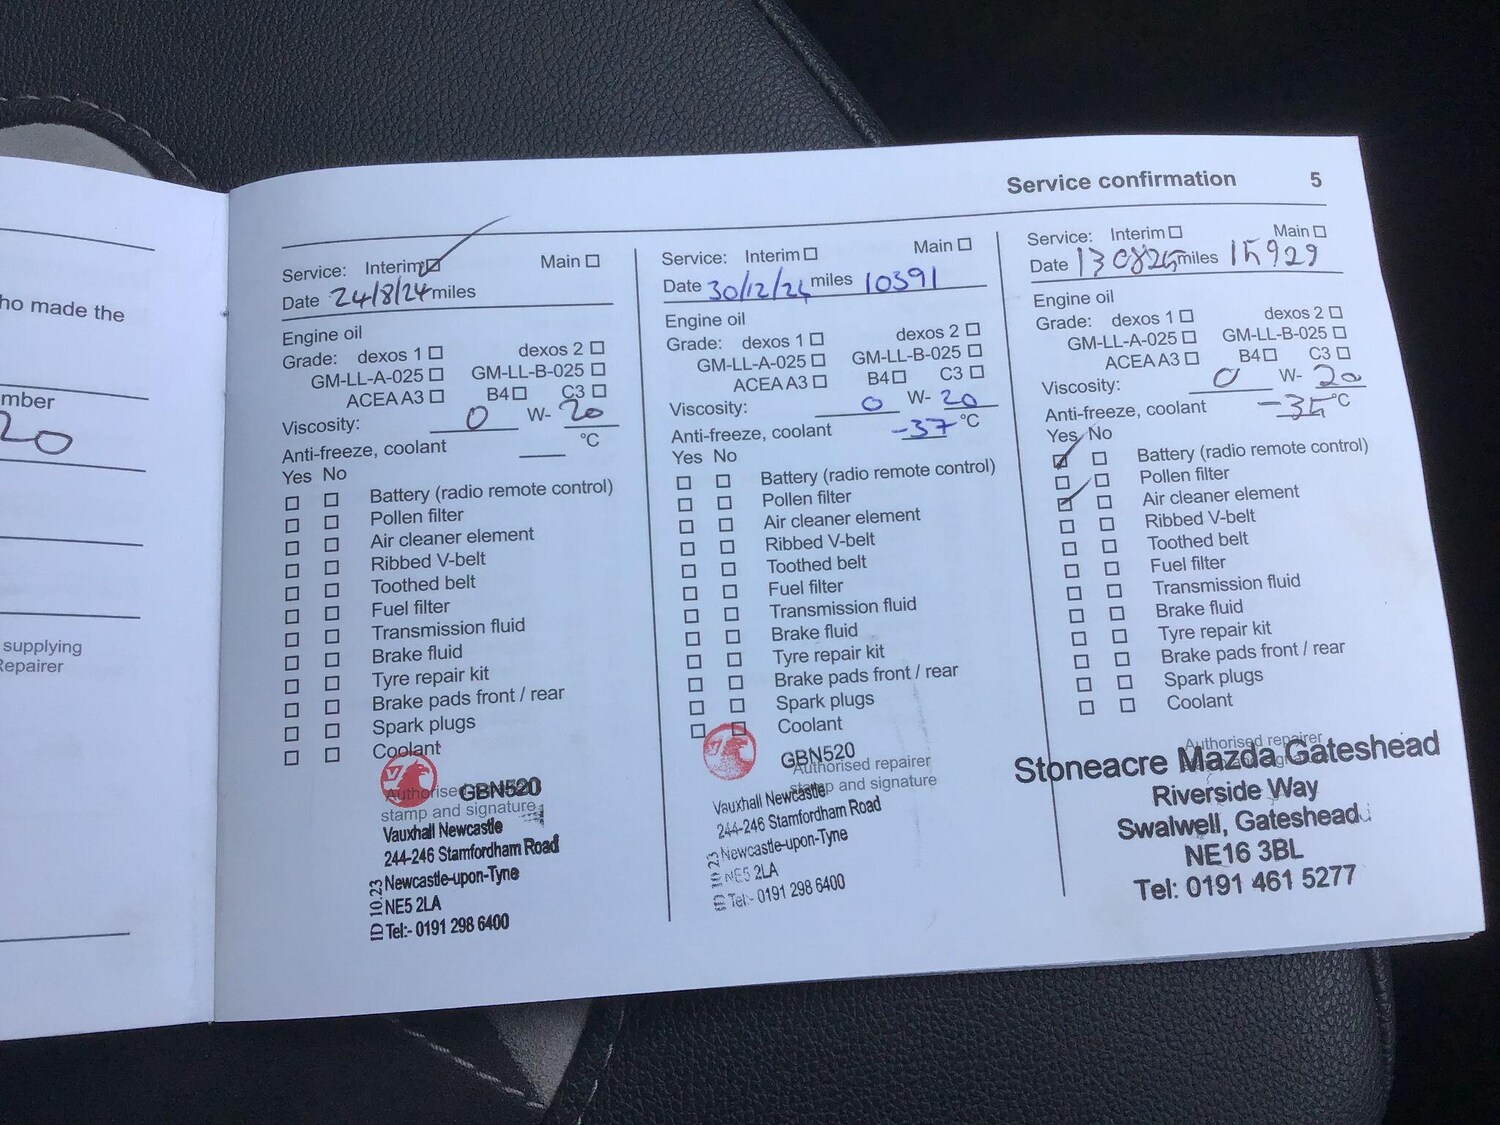 ho made the
mber
20
supplying
Repairer
Service confirmation 5
Service: Interim Main
Date 24/8/24 miles
Engine oil
Grade: dexos 1 dexos 2
GM-LL-A-025 GM-LL-B-025
ACEA A3 B4 C3
Viscosity: 0 W- 20
Anti-freeze, coolant °C
Yes No
Battery (radio remote control)
Pollen filter
Air cleaner element
Ribbed V-belt
Toothed belt
Fuel filter
Transmission fluid
Brake fluid
Tyre repair kit
Brake pads front / rear
Spark plugs
Coolant
Authorised
GBN520
stamp and signature
Vauxhall Newcastle
244-246 Stamfordham Road
Newcastle-upon-Tyne
NE5 2LA
Tel:- 0191 298 6400
ID 10.23
Service: Interim Main
Date 30/12/24 miles 10391
Engine oil
Grade: dexos 1 dexos 2
GM-LL-A-025 GM-LL-B-025
ACEA A3 B4 C3
Viscosity: 0 W- 20
Anti-freeze, coolant -37 °C
Yes No
Battery (radio remote control)
Pollen filter
Air cleaner element
Ribbed V-belt
Toothed belt
Fuel filter
Transmission fluid
Brake fluid
Tyre repair kit
Brake pads front / rear
Spark plugs
Coolant
GBN520
Authorised repairer
stamp and signature
Vauxhall Newcastle
244-246 Stamfordham Road
Newcastle-upon-Tyne
NE5 2LA
Tel:- 0191 298 6400
ID 10.23
Service: Interim Main
Date 13 08 25 miles 15929
Engine oil
Grade: dexos 1 dexos 2
GM-LL-A-025 GM-LL-B-025
ACEA A3 B4 C3
Viscosity: 0 W- 20
Anti-freeze, coolant -35 °C
Yes No
Battery (radio remote control)
Pollen filter
Air cleaner element
Ribbed V-belt
Toothed belt
Fuel filter
Transmission fluid
Brake fluid
Tyre repair kit
Brake pads front / rear
Spark plugs
Coolant
Authorised repairer
Stoneacre Mazda Gateshead
Riverside Way
Swalwell, Gateshead
NE16 3BL
Tel: 0191 461 5277